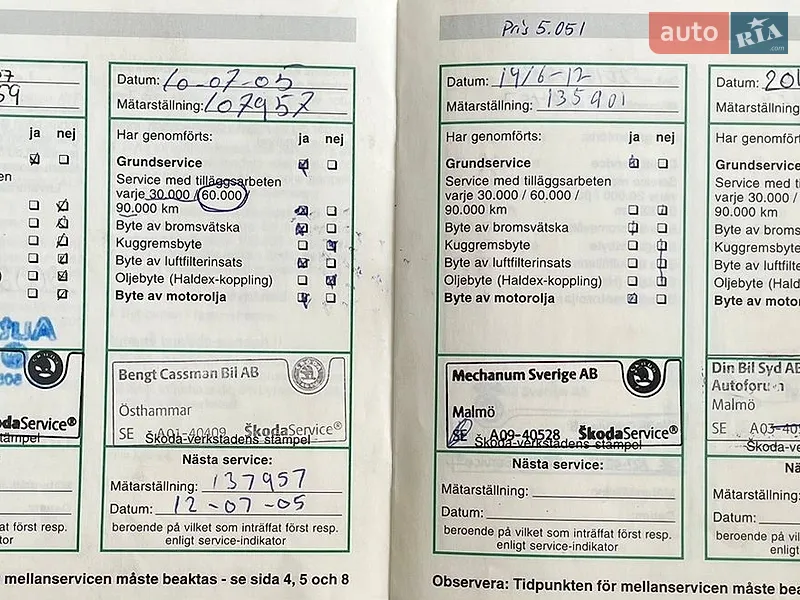 Pris 5.051
auto RIA .com
59
ja nej
Datum: 10-07-05
Mätarställning: 107957
Har genomförts: ja nej
Grundservice
Service med tilläggsarbeten
varje 30.000 / 60.000 /
90.000 km
Byte av bromsvätska
Kuggremsbyte
Byte av luftfilterinsats
Oljebyte (Haldex-koppling)
Byte av motorolja
Bengt Cassman Bil AB
Östhammar
SE A01-40409 ŠkodaService®
Škoda-verkstadens stämpel
Nästa service:
Mätarställning: 137957
Datum: 12-07-05
beroende på vilket som inträffat först resp.
enligt service-indikator
mellanservicen måste beaktas - se sida 4, 5 och 8
Datum: 19/6-12
Mätarställning: 135901
Har genomförts: ja nej
Grundservice
Service med tilläggsarbeten
varje 30.000 / 60.000 /
90.000 km
Byte av bromsvätska
Kuggremsbyte
Byte av luftfilterinsats
Oljebyte (Haldex-koppling)
Byte av motorolja
Mechanum Sverige AB
Malmö
SE A09-40528 ŠkodaService®
Škoda-verkstadens stämpel
Nästa service:
Mätarställning:
Datum:
beroende på vilket som inträffat först resp.
enligt service-indikator
Observera: Tidpunkten för mellanservicen måste bea
Datum: 201
Mätarställning:
Har genomförts:
Grundservice
Service med till
varje 30.000 / 6
90.000 km
Byte av bromsv
Kuggremsbyte
Byte av luftfilter
Oljebyte (Halde
Byte av motoro
Din Bil Syd AB
Malmö
SE A03-405
Škoda-ve
Nä
Mätarställning:
Datum:
beroende på vilke
enlig